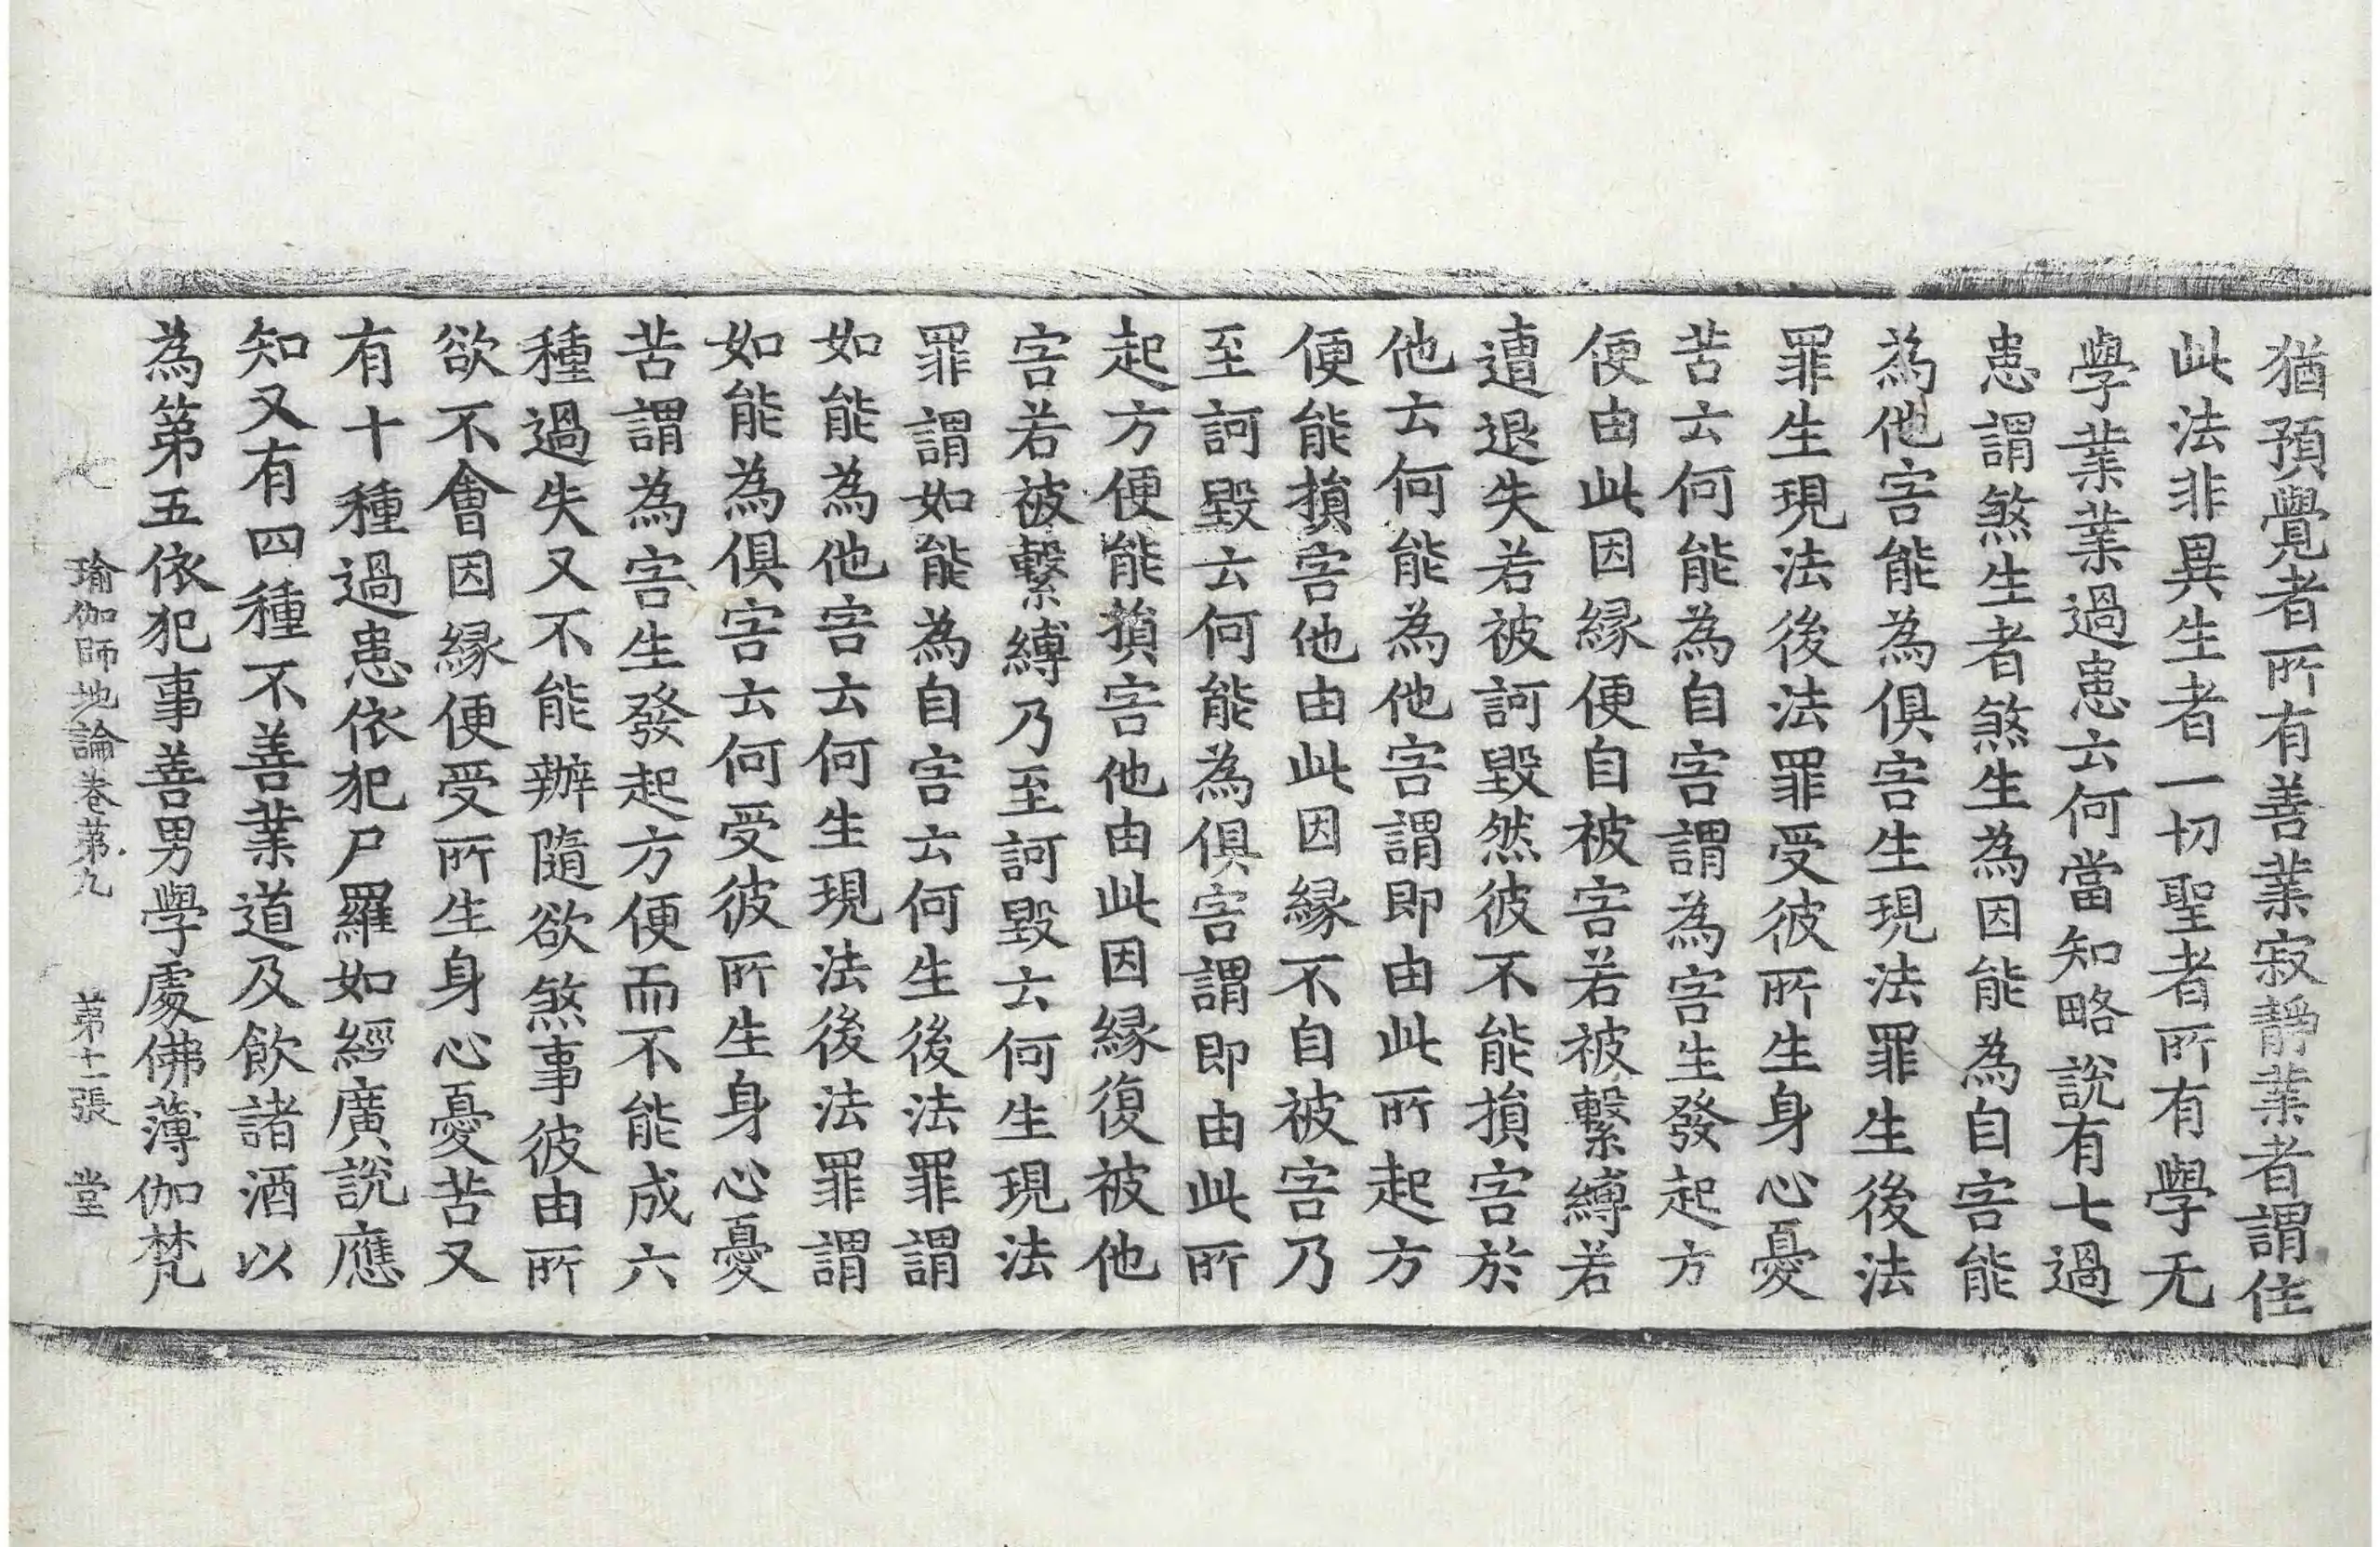 猶預覺者所有善業寂靜業者謂住
此法非異生者一切聖者所有學无
學業業過患云何當知略說有七過
患謂煞生者煞生為因能為自害能
為他害能為俱害生現法罪生後法
罪生現法後法罪受彼所生身心憂
苦云何能為自害謂為害生發起方
便由此因緣便自被害若被繫縛若
遭退失若被訶毀然彼不能損害於
他云何能為他害謂即由此所起方
便能損害他由此因緣不自被害乃
至訶毀云何能為俱害謂即由此所
起方便能損害他由此因緣復被他
害若被繫縛乃至訶毀云何生現法
罪謂如能為自害云何生後法罪謂
如能為他害云何生現法後法罪謂
如能為俱害云何受彼所生身心憂
苦謂為害生發起方便而不能成六
種過失又不能辦隨欲煞事彼由所
欲不會因緣便受所生身心憂苦又
有十種過患依犯尸羅如經廣說應
知又有四種不善業道及飲諸酒以
為第五依犯事善男學處佛薄伽梵
瑜伽師地論卷第九 第十二張 堂